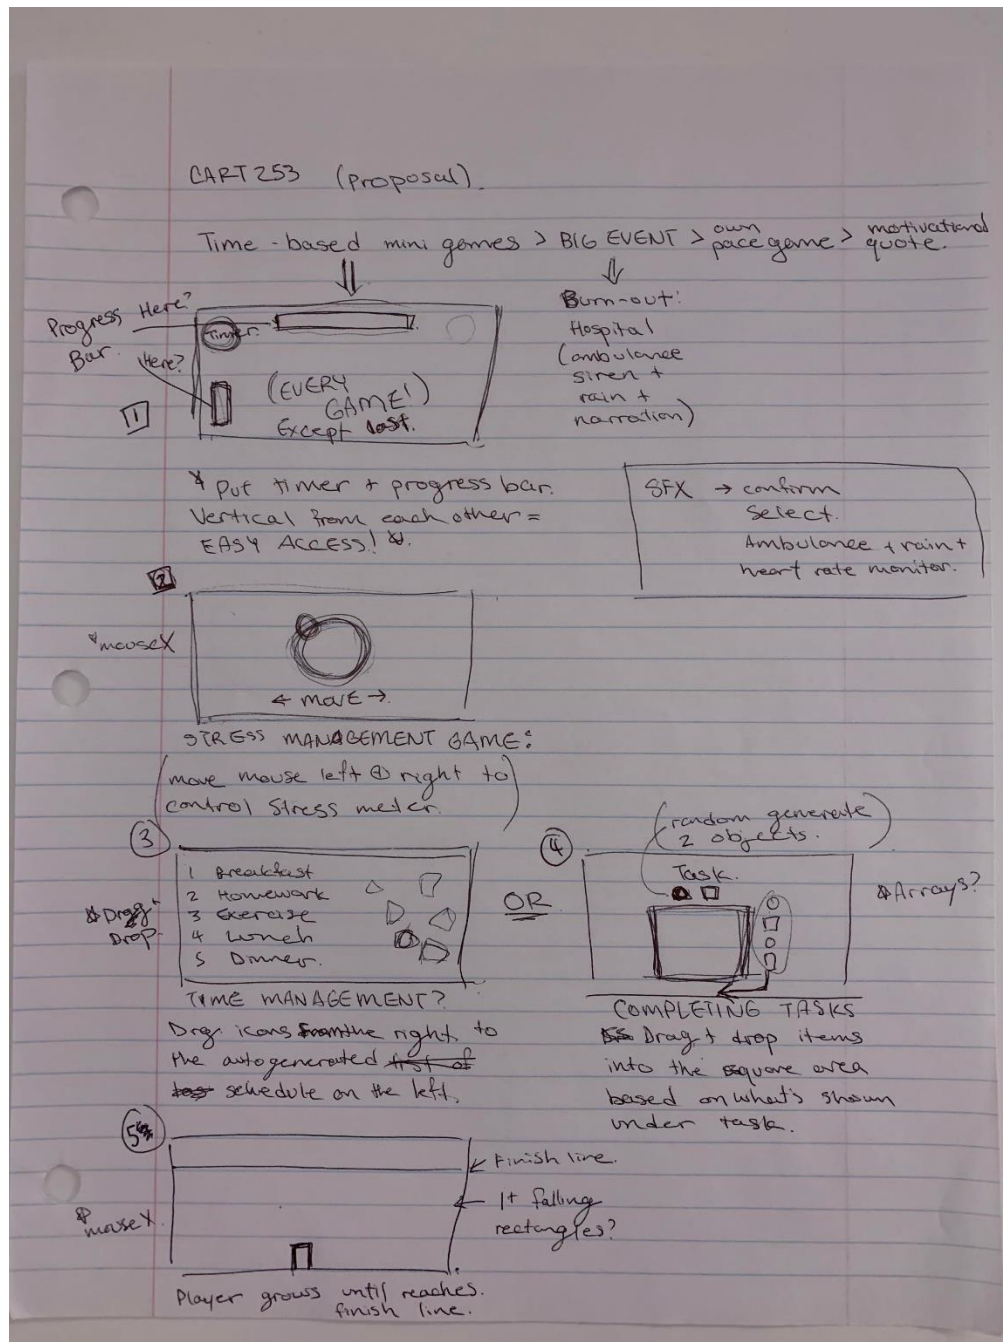 CART 253 (proposal).
Time-based mini games > BIG EVENT > own pace game > motivational quote.
Progress Bar.
Here?
Here?
Timer.
1
(EVERY
GAME!)
Except last.
Burn-out:
Hospital
(ambulance
siren +
rain +
narration)
* Put timer + progress bar.
Vertical from each other =
EASY ACCESS! *.
SFX → confirm
Select.
Ambulance + rain +
heart rate monitor.
2
*mouseX
← MOVE →.
STRESS MANAGEMENT GAME:
(move mouse left + right to
control Stress meter.)
3
* Drag +
Drop
1 Breakfast
2 Homework
3 Exercise
4 Lunch
5 Dinner.
TIME MANAGEMENT?
Drag icons from the right to
the autogenerated
schedule on the left.
OR
4
(random generate
2 objects.)
Task.
*Arrays?
COMPLETING TASKS
Drag + drop items
into the square area
based on what's shown
under task.
5
*mouseX
← Finish line.
← 1+ falling
rectangles?
Player grows until reaches.
finish line.